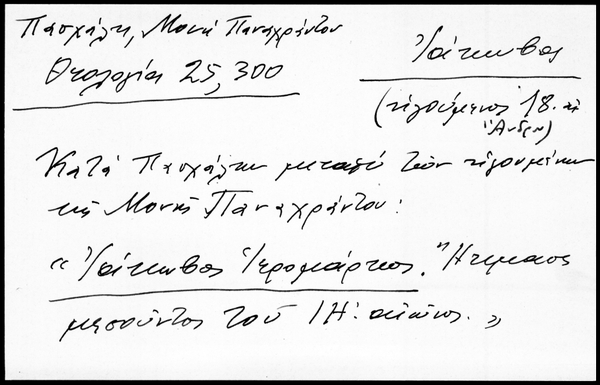 Πασχάλη, Μονή Παναχράντου
Θεολογία 25, 300
Ἰάκωβος
(ἡγούμενος 18. αἰ
Ἄνδρῳ)
Κατά Πασχάλην μεταξύ τῶν ἡγουμένων
τῆς Μονῆς Παναχράντου:
« Ἰάκωβος Ἱερομάρτυς. Ἤκμασε
μεσοῦντος τοῦ ΙΗ΄ αἰῶνος. »